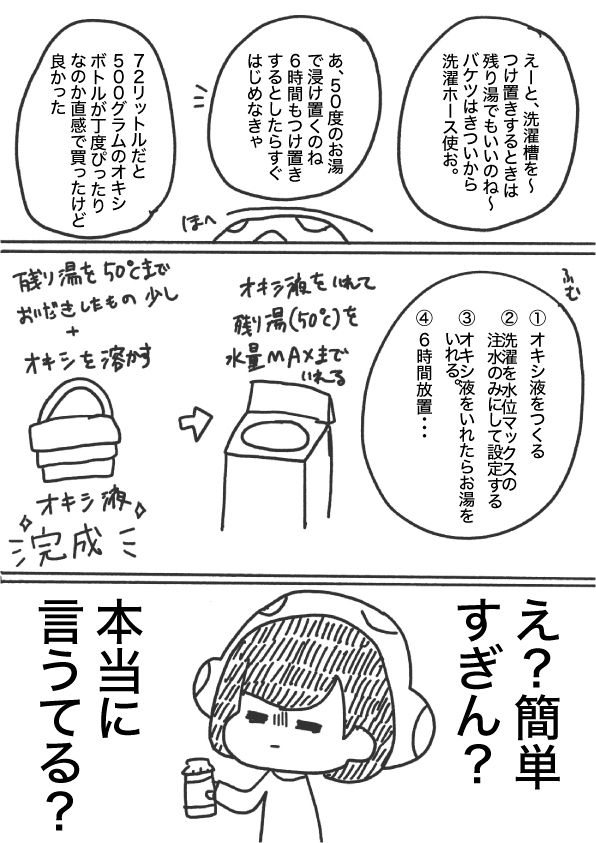 えーと、洗濯槽を〜
つけ置きするときは
残り湯でもいいのね〜
バケツはきついから
洗濯ホース使お。
あ、50度のお湯
で浸け置くのね
6時間もつけ置き
するとしたらすぐ
はじめなきゃ
72リットルだと
500グラムのオキシ
ボトルが丁度ぴったり
なのか直感で買ったけど
良かった
ほへ
ふむ
① オキシ液をつくる
② 洗濯を水位マックスの
注水のみにして設定する
③ オキシ液をいれたらお湯を
いれる。
④ 6時間放置・・・
残り湯を50℃まで
おいだきしたもの 少し
+
オキシを溶かす
オキシ液
完成
オキシ液をいれて
残り湯(50℃)を
水量MAXまで
いれる
え？簡単
すぎん？
本当に
言うてる？